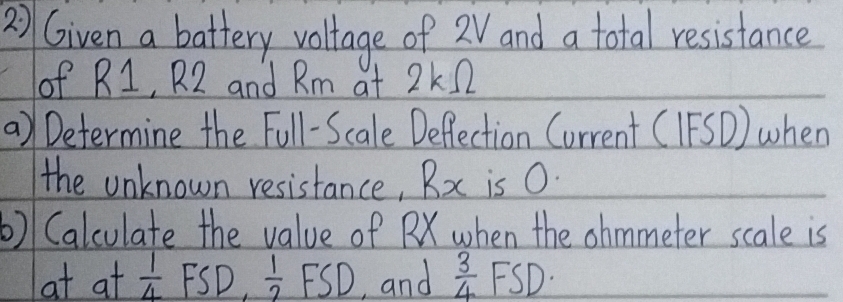 2.) Given a battery voltage of 2V and a total resistance
of R1, R2 and Rm at 2kΩ
a) Determine the Full-Scale Deflection Current (IFSD) when
the unknown resistance, Rx is 0.
b) Calculate the value of RX when the ohmmeter scale is
at at 1/4 FSD, 1/2 FSD, and 3/4 FSD.